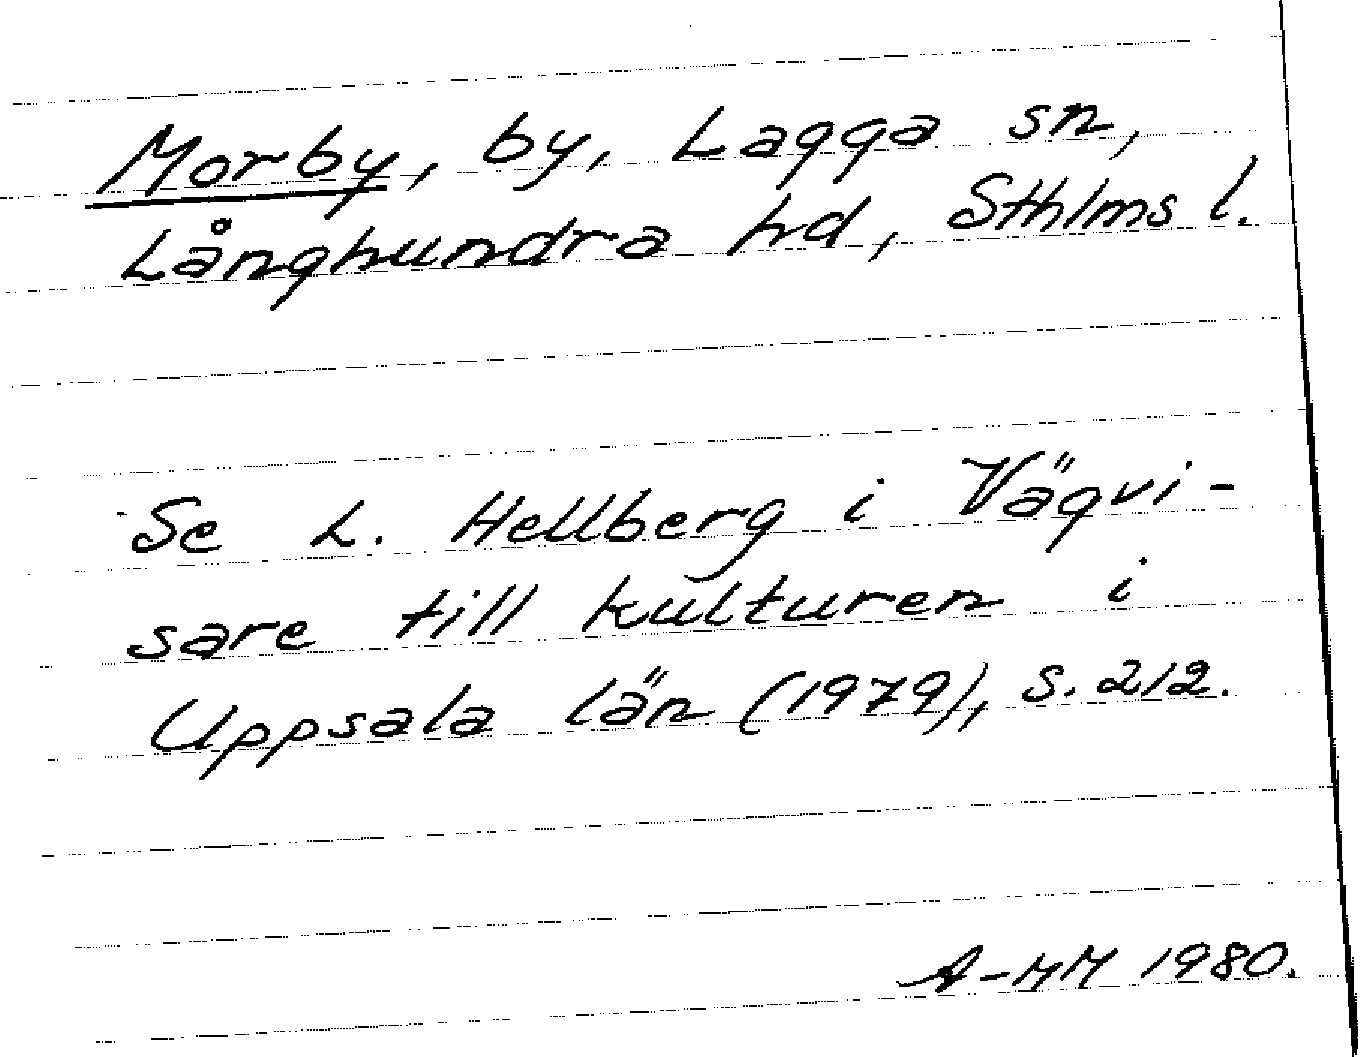 Morby, by, Lagga sn,
Långhundra hd, Sthlms l.
Se L. Hellberg i Vägvi-
sare till kulturen i
Uppsala län (1979), s. 212.
A-MM 1980.